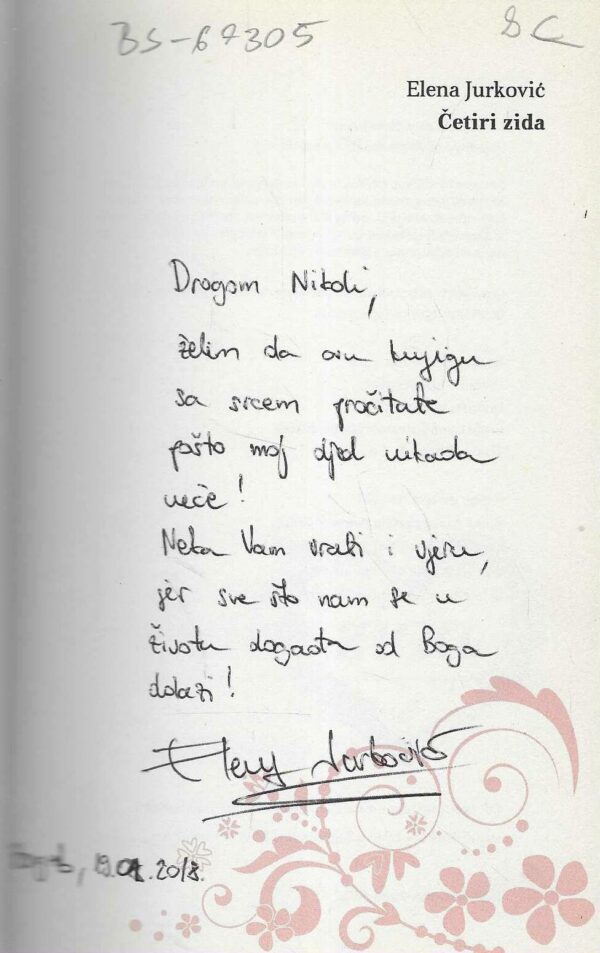 BS-67305
SC
Elena Jurković
Četiri zida
Dragom Nikoli,
želim da ovu knjigu
sa srcem pročitate
pošto moj djed nikada
neće!
Neka Vam vrati i vjeru,
jer sve što nam se u
životu događa od Boga
dolazi!
Jurković
2018.